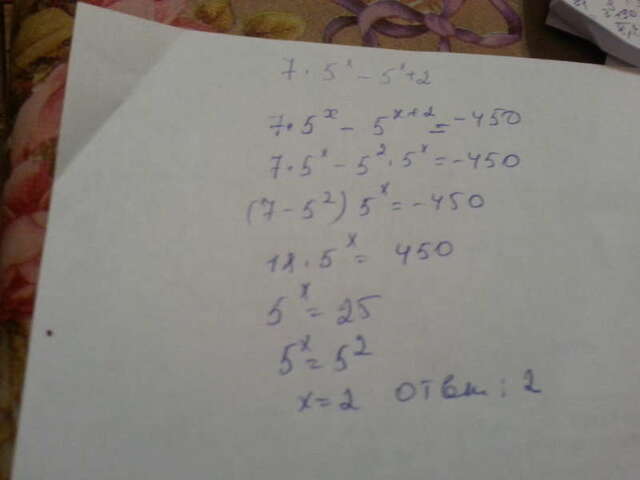 7·5ˣ - 5ˣ+2
7·5ˣ - 5ˣ⁺² = -450
7·5ˣ - 5²·5ˣ = -450
(7-5²) 5ˣ = -450
18·5ˣ = 450
5ˣ = 25
5ˣ = 5²
x = 2 ответ: 2